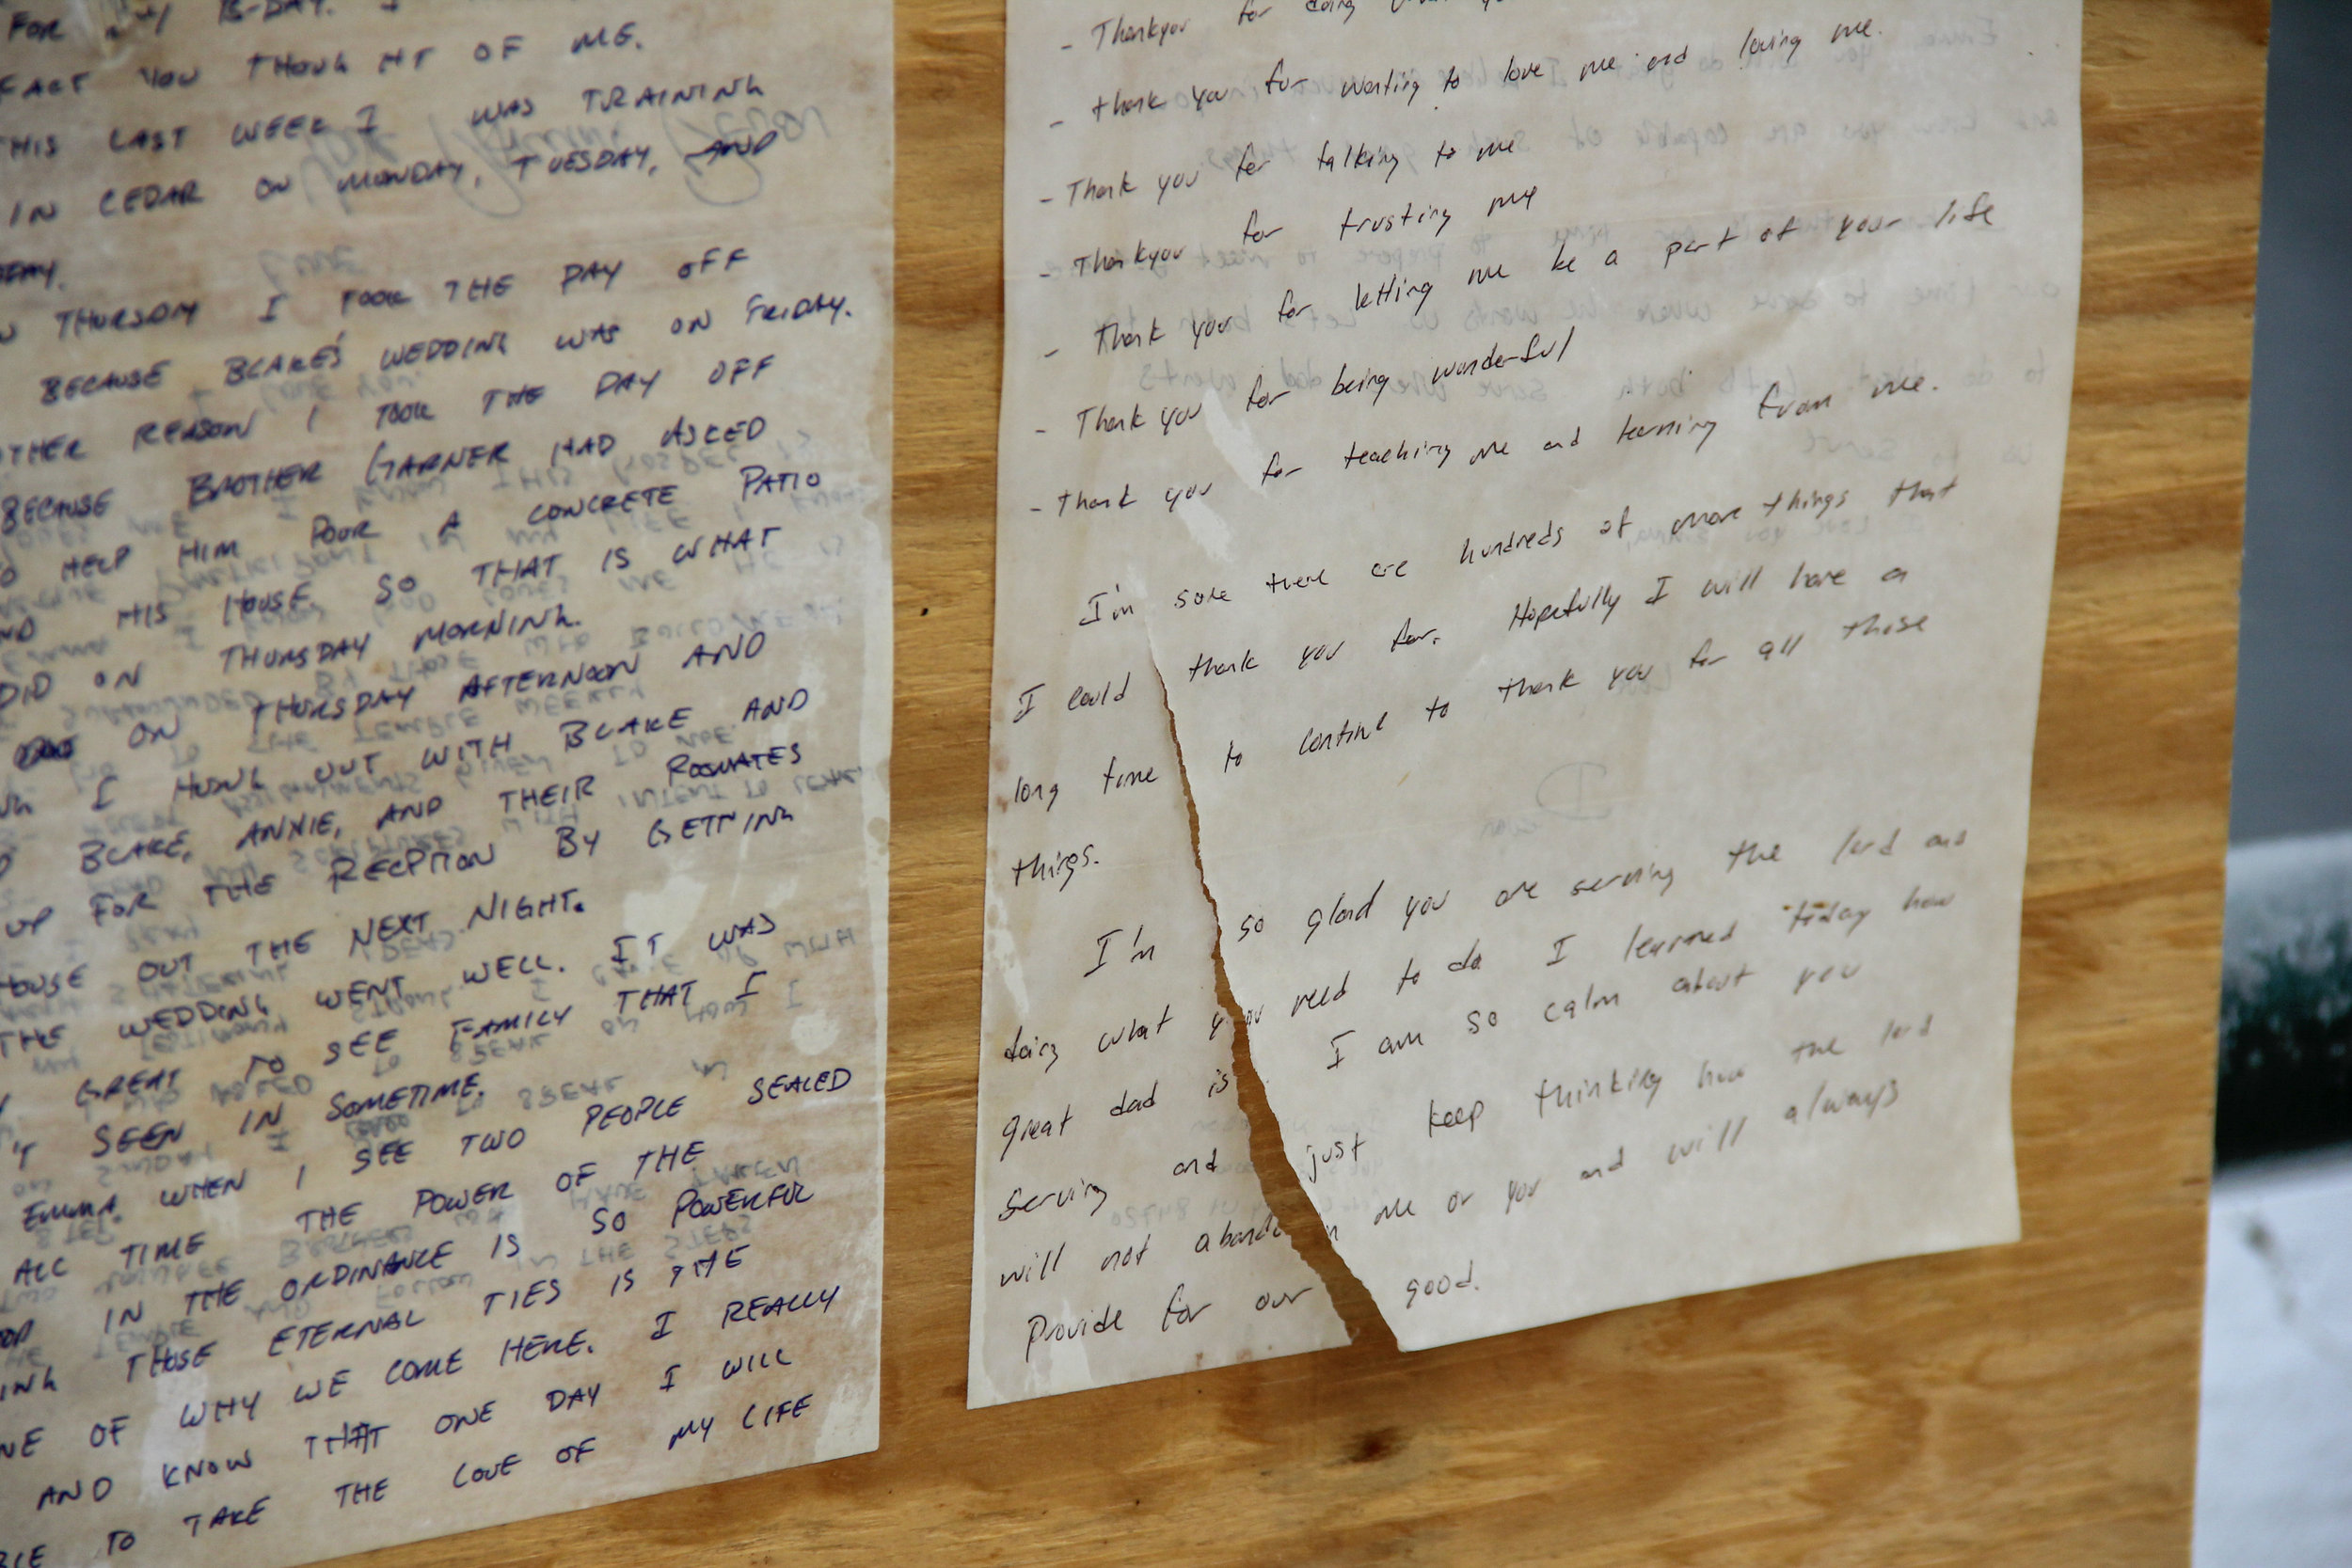 FOR MY B-DAY. I
FACT YOU THOUGHT OF ME.
THIS LAST WEEK I WAS TRAINING
IN CEDAR ON MONDAY, TUESDAY, AND
THURSDAY I TOOK THE DAY OFF
BECAUSE BLAKE'S WEDDING WAS ON FRIDAY.
OTHER REASON I TOOK THE DAY OFF
BECAUSE BROTHER GARNER HAD ASKED
HELP HIM POUR A CONCRETE PATIO
HIS HOUSE SO THAT IS WHAT
DID ON THURSDAY MORNING.
ON THURSDAY AFTERNOON AND
I HUNG OUT WITH BLAKE AND
BLAKE, ANNIE, AND THEIR ROOMATES
UP FOR THE RECPTION BY GETTING
HOUSE OUT THE NEXT NIGHT.
THE WEDDING WENT WELL. IT WAS
GREAT TO SEE FAMILY THAT I
SEEN IN SOMETIME.
EMMA WHEN I SEE TWO PEOPLE SEALED
ALL TIME THE POWER OF THE
IN THE ORDINANCE IS SO POWERFUL
THOSE ETERNAL TIES IS THE
OF WHY WE COME HERE. I REALLY
AND KNOW THAT ONE DAY I WILL
TO TAKE THE LOVE OF MY LIFE
- Thankyou for doing
- thank you for wanting to love me and loving me.
- Thank you for talking to me
- Thankyou for trusting me
- Thank you for letting me be a part of your life
- Thank you for being wonderful
- Thank you for teaching me and learning from me.
I'm sure there are hundreds of more things that
I could thank you for. Hopefully I will have a
long time to continue to thank you for all those
things.
I'm so glad you are serving the lord and
doing what you need to do. I learned today how
great dad is. I am so calm about you
serving and just keep thinking how the lord
will not abandon me or you and will always
Provide for our good.